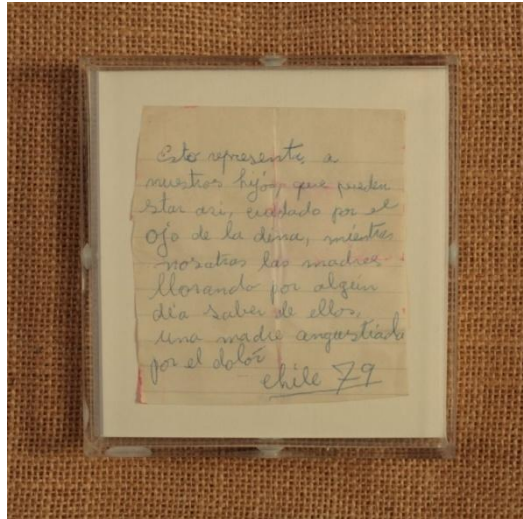 Esto representa a
nuestros hijos, que pueden
star asi, cuidado por el
ojo de la dina, miéntras
nosatras las madres
llorando por algún
día saber de ellos,
una madre angustiada
por el dolór
chile 79